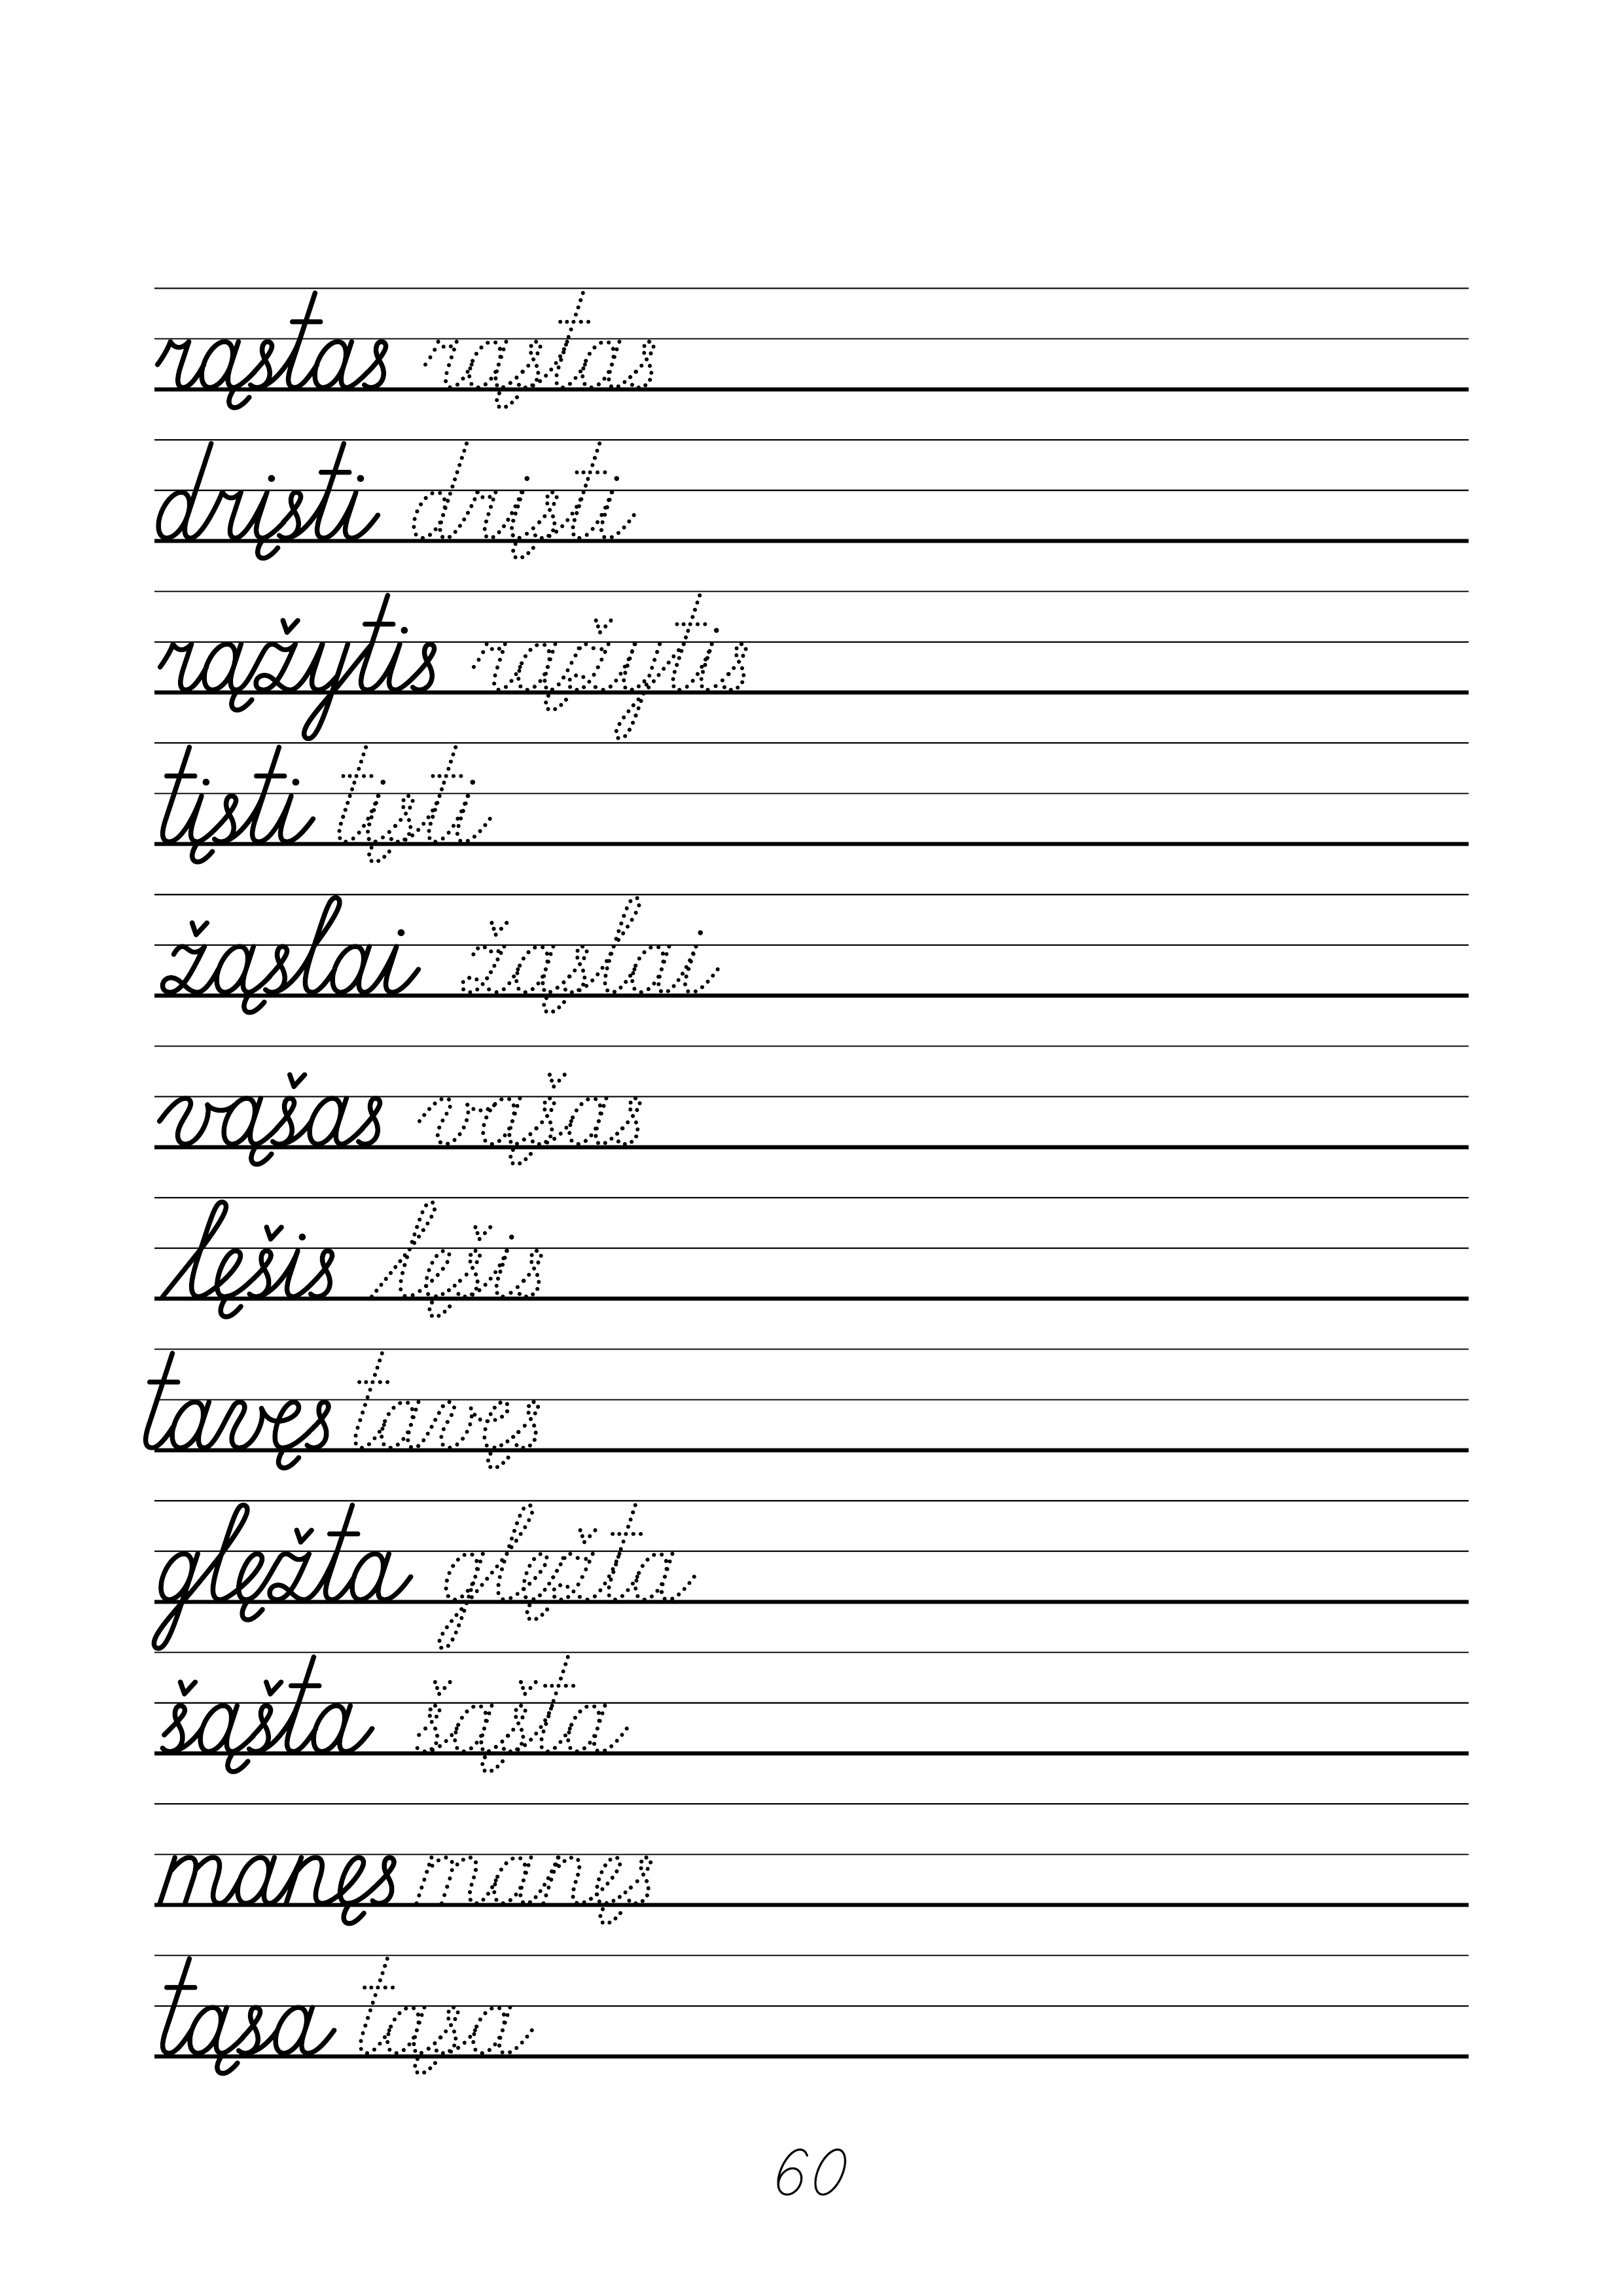 rąstas rąstas
drįsti drįsti
rąžytis rąžytis
tįsti tįsti
žąslai žąslai
vąšas vąšas
lęšis lęšis
tavęs tavęs
glęžta glęžta
šąšta šąšta
manęs manęs
tąsa tąsa
60